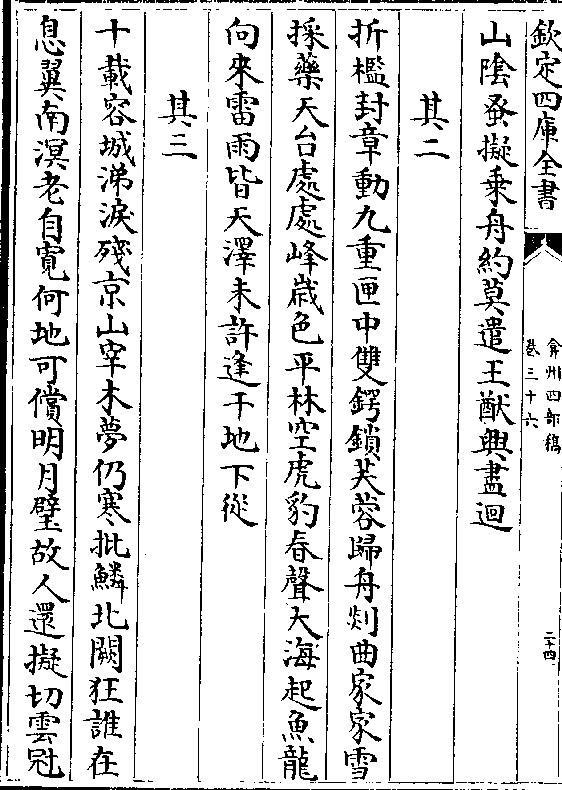 欽定四庫全書
弇州四部稿
卷三十六
二十四
山陰蚤擬乘舟約莫遣王猷興盡迴
其二
折檻封章動九重匣中雙鍔鎖芙蓉歸舟剡曲家家雪
採藥天台處處峰歲色平林空虎豹春聲大海起魚龍
向來雷雨皆天澤未許逢干地下從
其三
十載容城涕淚殘京山宰木夢仍寒批鱗北闕狂誰在
息翼南溟老自寬何地可償明月璧故人還擬切雲冠